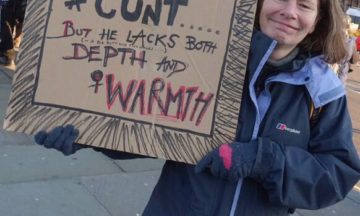 #CUNT.....
BUT HE LACKS BOTH
DEPTH AND
WARMTH
berghaus